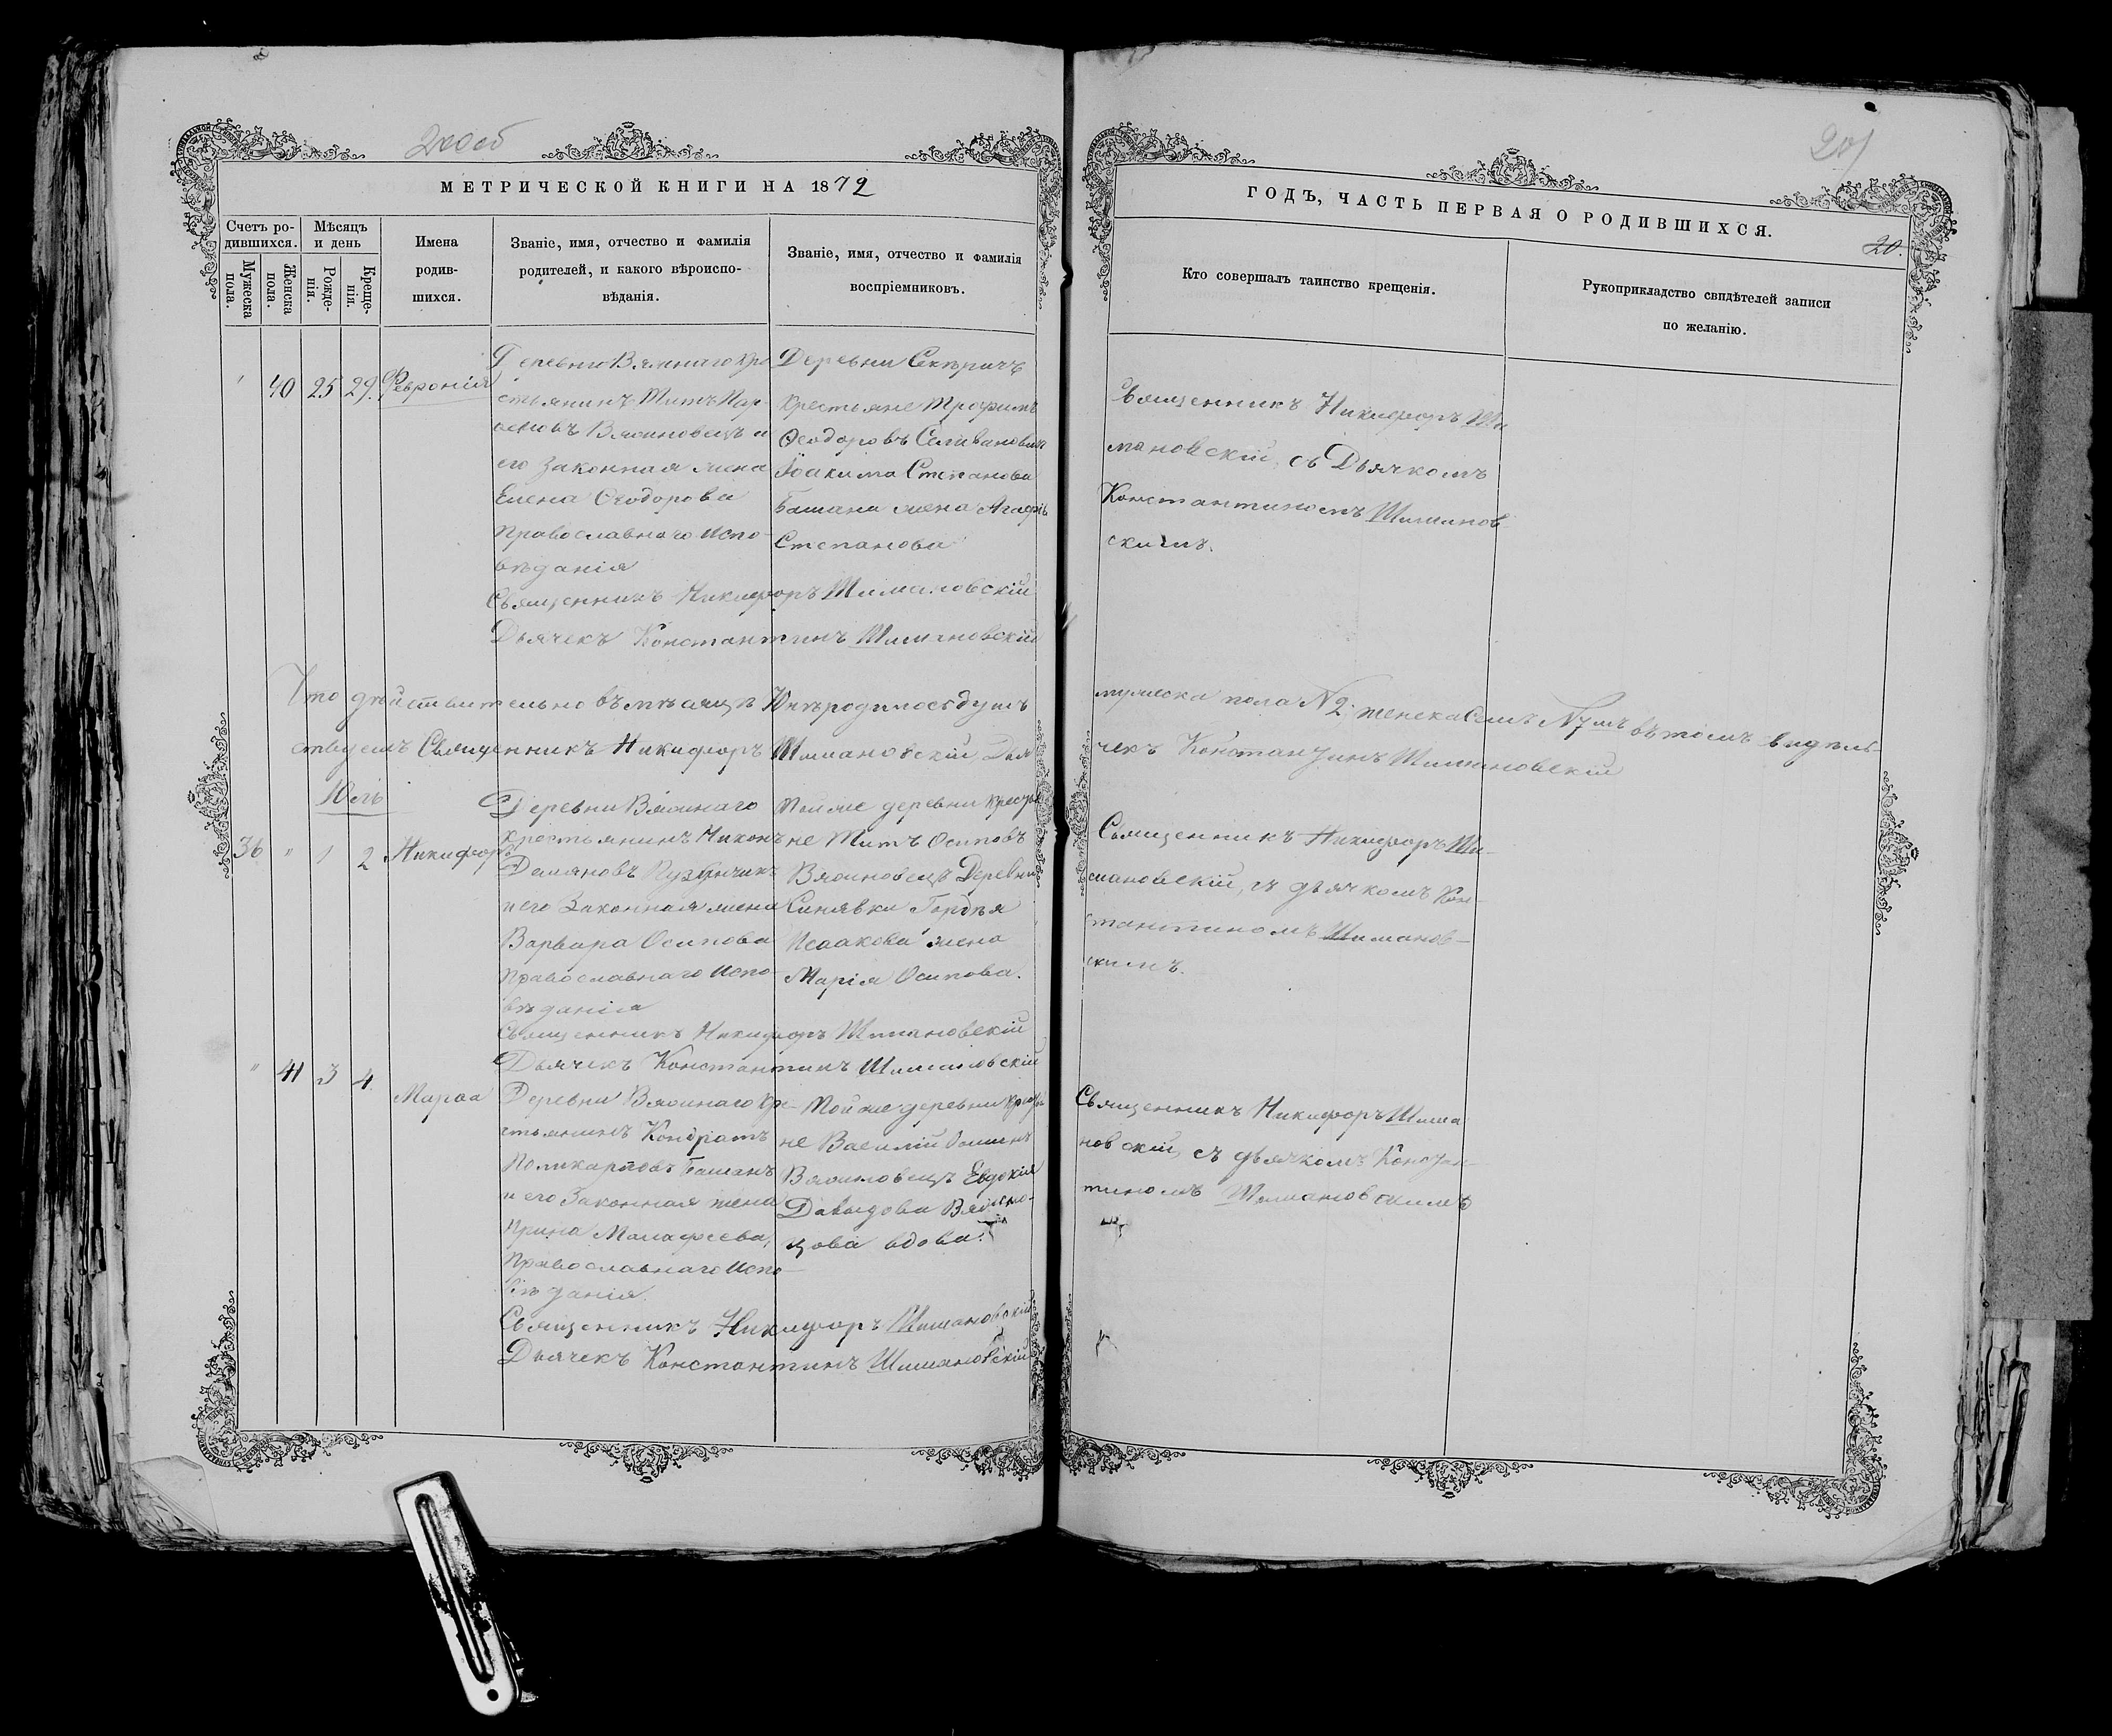 200об
МЕТРИЧЕСКОЙ КНИГИ НА 1872
Счетъ ро-
дившихся.
Мужеска
пола.
Женска
пола.
Мѣсяцъ
и день
Рожде-
нія.
Креще-
нія.
Имена
родив-
шихся.
Званіе, имя, отчество и фамилія
родителей, и какого вѣроиспо-
вѣданія.
Званіе, имя, отчество и фамилія
воспріемниковъ.
40 25 29. Февронія
Деревни Вясинаго кре
стьянинъ Титъ
Вясиновецъ и
его Законная жена
Елена Ѳеодорова
Православнаго Испо-
вѣданія
Деревни
Крестьяне Трофимъ
Ѳеодоровъ
Іоакима Степанова
Башана жена
Степанова
Священникъ Никифоръ Шимановскій
Дьячекъ Константинъ Шимановскій
Что дѣйствительно въ мѣсяцѣ Юнѣ родилось душъ
ствуемъ Священникъ Никифоръ Шимановскій Дья
Юль
36 " 1 2 Никифоръ
Деревни Вясинаго
Крестьянинъ Никонъ
Демяновъ
и его Законная жена
Варвара Осипова
Православнаго Испо-
вѣданія
Той же деревни Крестья
не Титъ Осиповъ
Вясиновецъ Деревни
Синявки Гордѣя
Исаакова жена
Марія Осипова.
Священникъ Никифоръ Шимановскій
Дьячекъ Константинъ Шимановскій
" 41 3 4. Марѳа
Деревни Вясинаго Кре-
стьянинъ Кондратъ
Поликарповъ Башанъ
и его Законная жена
Ирина Малафеева,
Православнаго Испо-
вѣданія.
Той же деревни Крестья
не Василій
Вясиновецъ Евдокія
Давыдова Вясино-
цова вдова.
Священникъ Никифоръ Шимановскій
Дьячекъ Константинъ Шимановскій
201
ГОДЪ, ЧАСТЬ ПЕРВАЯ О РОДИВШИХСЯ.
20.
Кто совершалъ таинство крещенія.
Рукоприкладство свидѣтелей записи
по желанію.
Священникъ Никифоръ Ши
мановскій, съ Дьячкомъ
Константиномъ Шиманов
скимъ.
мужеска пола N 2. женска N 7 въ томъ свидѣтель
чекъ Константинъ Шимановскій
Священникъ Никифоръ Ши-
мановскій, съ дьячкомъ Кон-
стантиномъ Шиманов-
скимъ.
Священникъ Никифоръ Шима
новскій, съ дьячкомъ Констан-
тиномъ Шимановскимъ